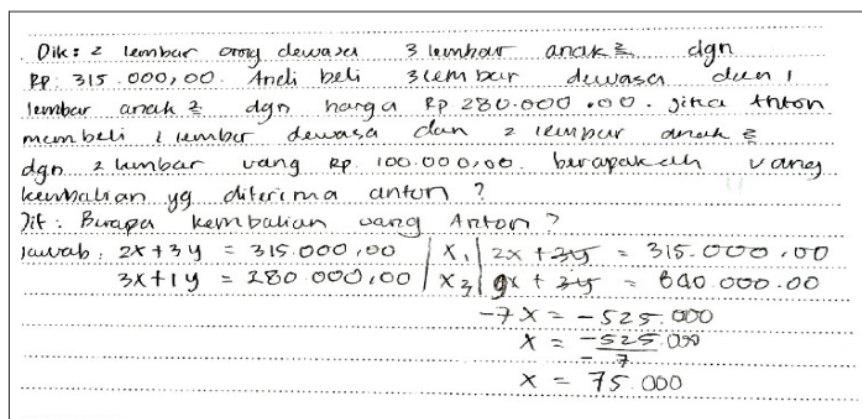 Dik: 2 lembar orng dewasa 3 lembar anak2 dgn
RP. 315.000,00. Andi beli 3 lembar dewasa dan 1
lembar anak2 dgn harga Rp 280.000.00. jika Anton
membeli 1 lembar dewasa dan 2 lembar anak2
dgn 2 lembar uang RP. 100.000,00. berapakah uang
kembalian yg diterima anton?
Dit: Berapa kembalian uang Anton?
Jawab: 2x+3y = 315.000,00 | x1 | 2x + 3y = 315.000,00
3x+1y = 280.000,00 | x3 | 9x + 3y = 840.000.00
-7x = -525.000
x = -525.000
-7
x = 75.000